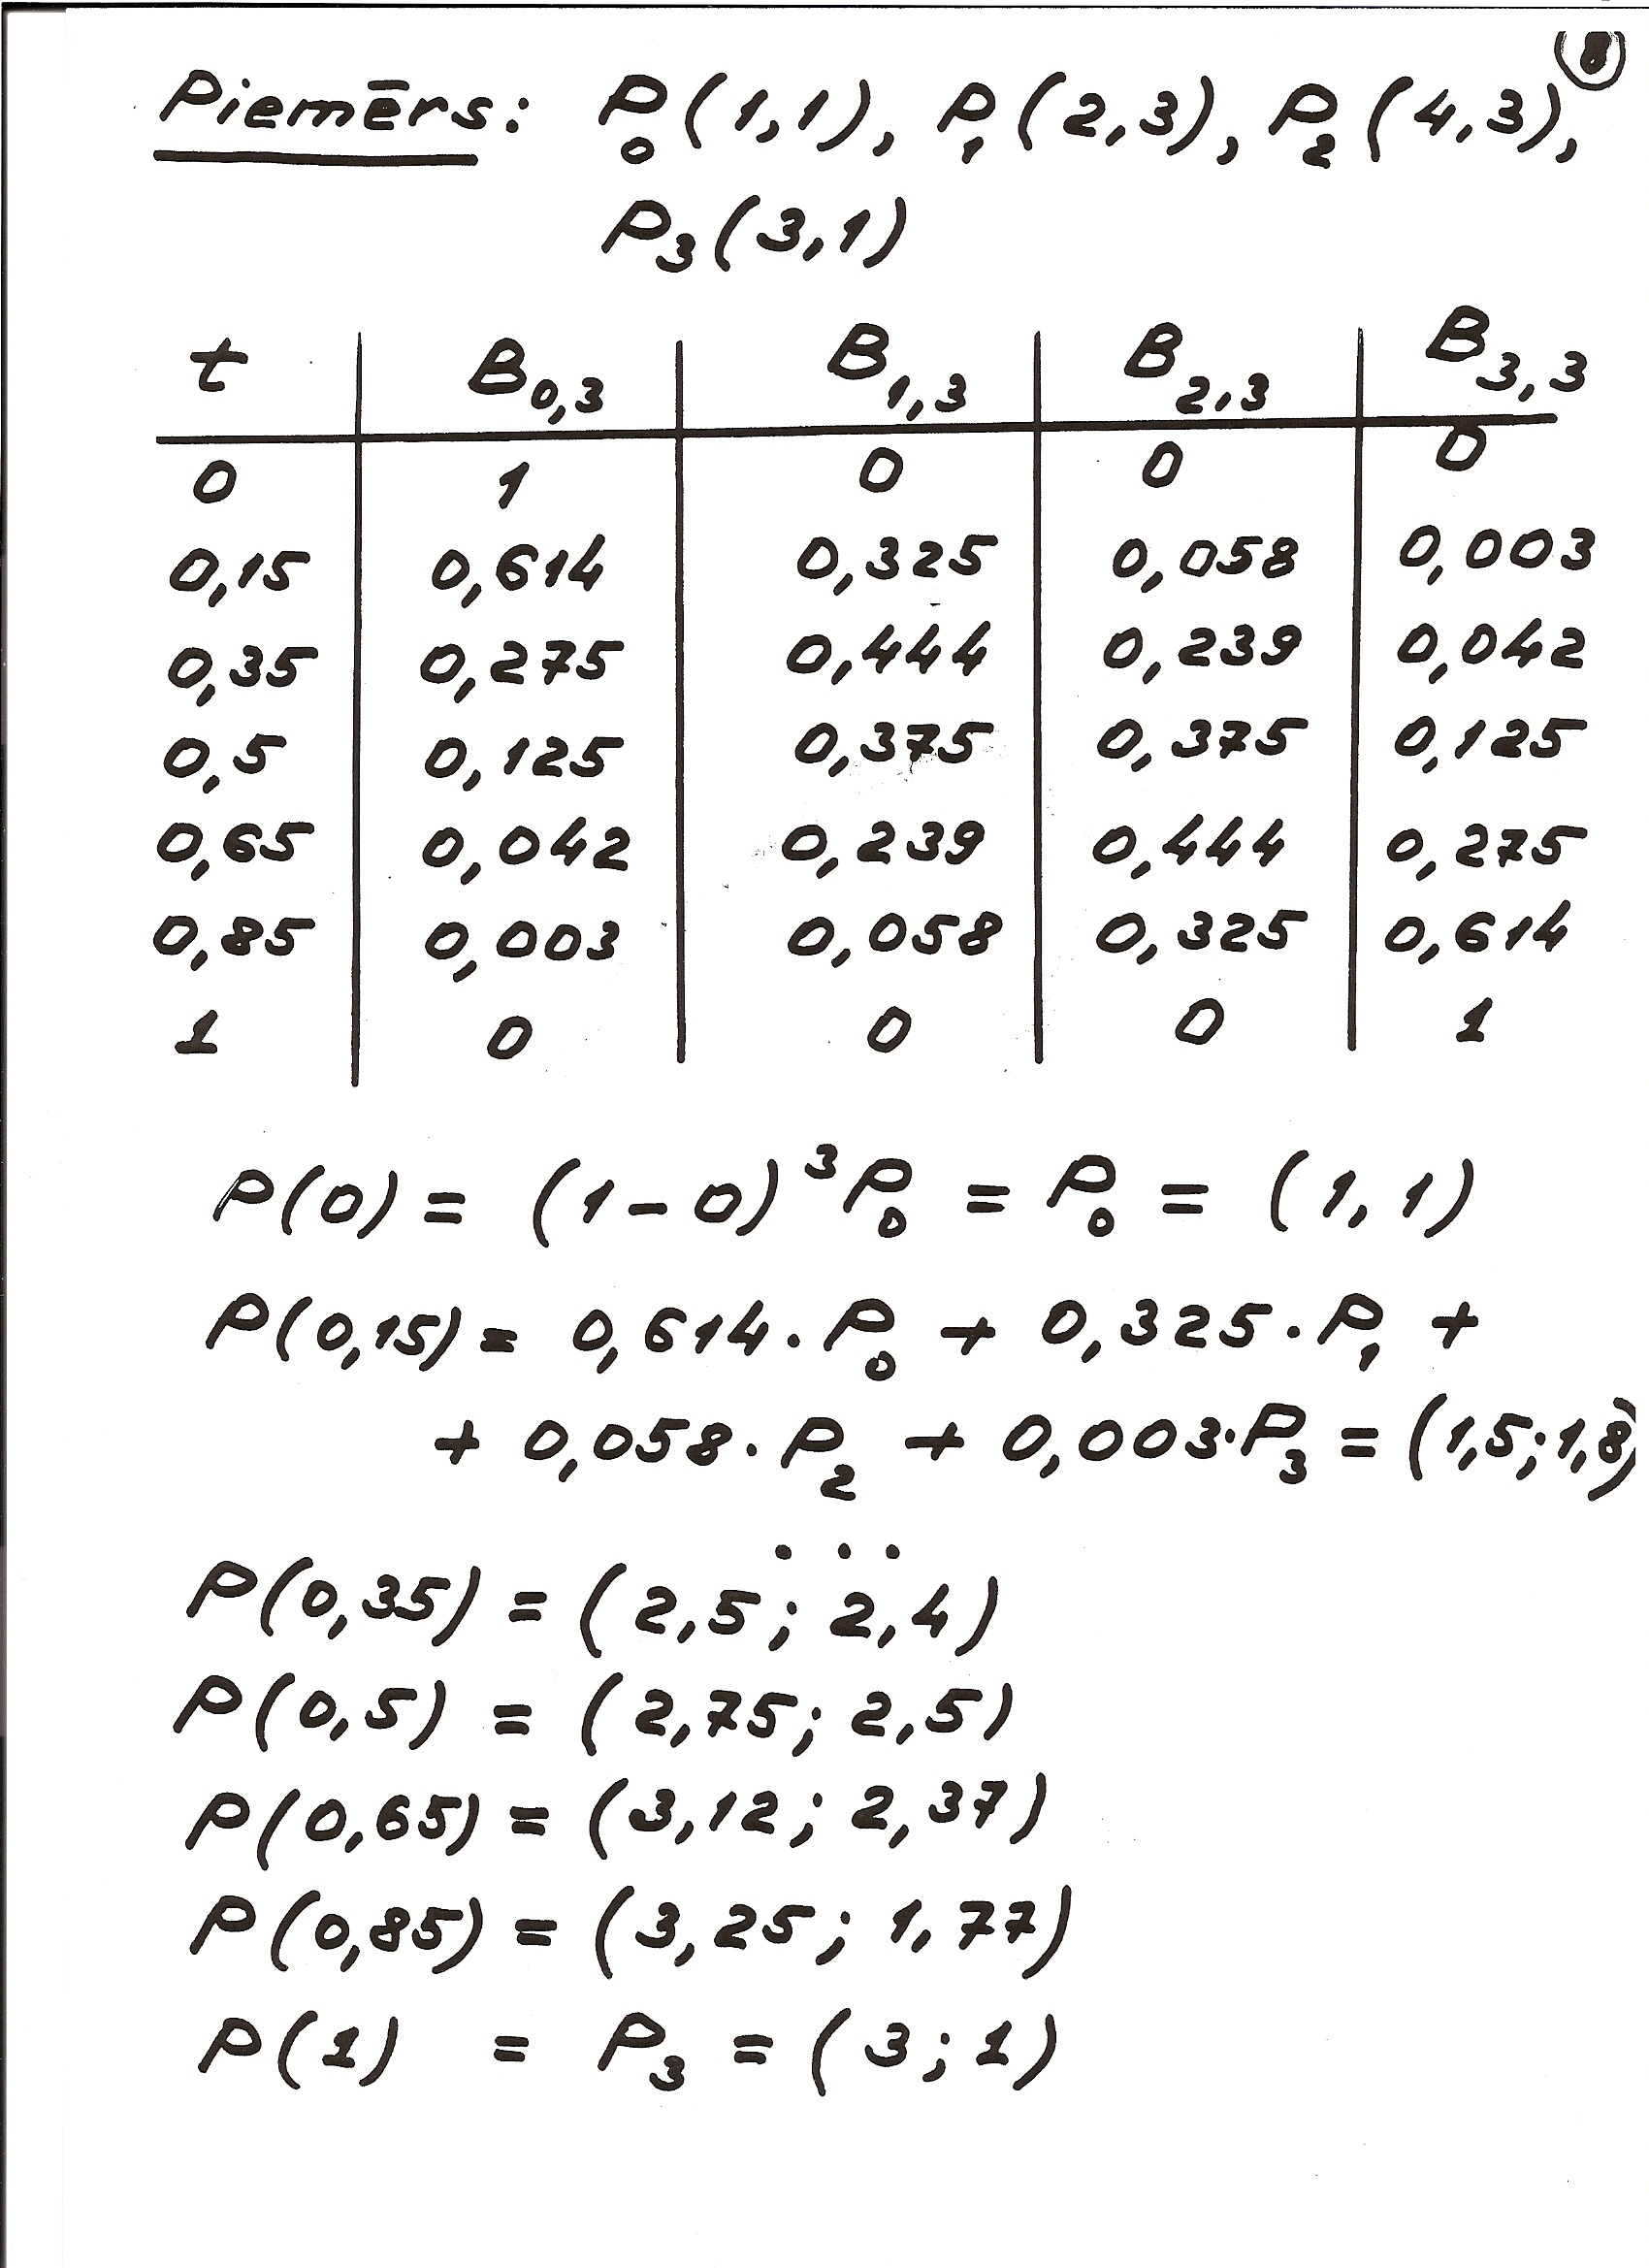 8
Piemērs: P₀(1,1), P₁(2,3), P₂(4,3),
P₃(3,1)
t B₀,₃ B₁,₃ B₂,₃ B₃,₃
0 1 0 0 0
0,15 0,614 0,325 0,058 0,003
0,35 0,275 0,444 0,239 0,042
0,5 0,125 0,375 0,375 0,125
0,65 0,042 0,239 0,444 0,275
0,85 0,003 0,058 0,325 0,614
1 0 0 0 1
P(0) = (1-0)³P₀ = P₀ = (1,1)
P(0,15) = 0,614·P₀ + 0,325·P₁ +
+ 0,058·P₂ + 0,003·P₃ = (1,5;1,8)
...
P(0,35) = (2,5; 2,4)
P(0,5) = (2,75; 2,5)
P(0,65) = (3,12; 2,37)
P(0,85) = (3,25; 1,77)
P(1) = P₃ = (3;1)